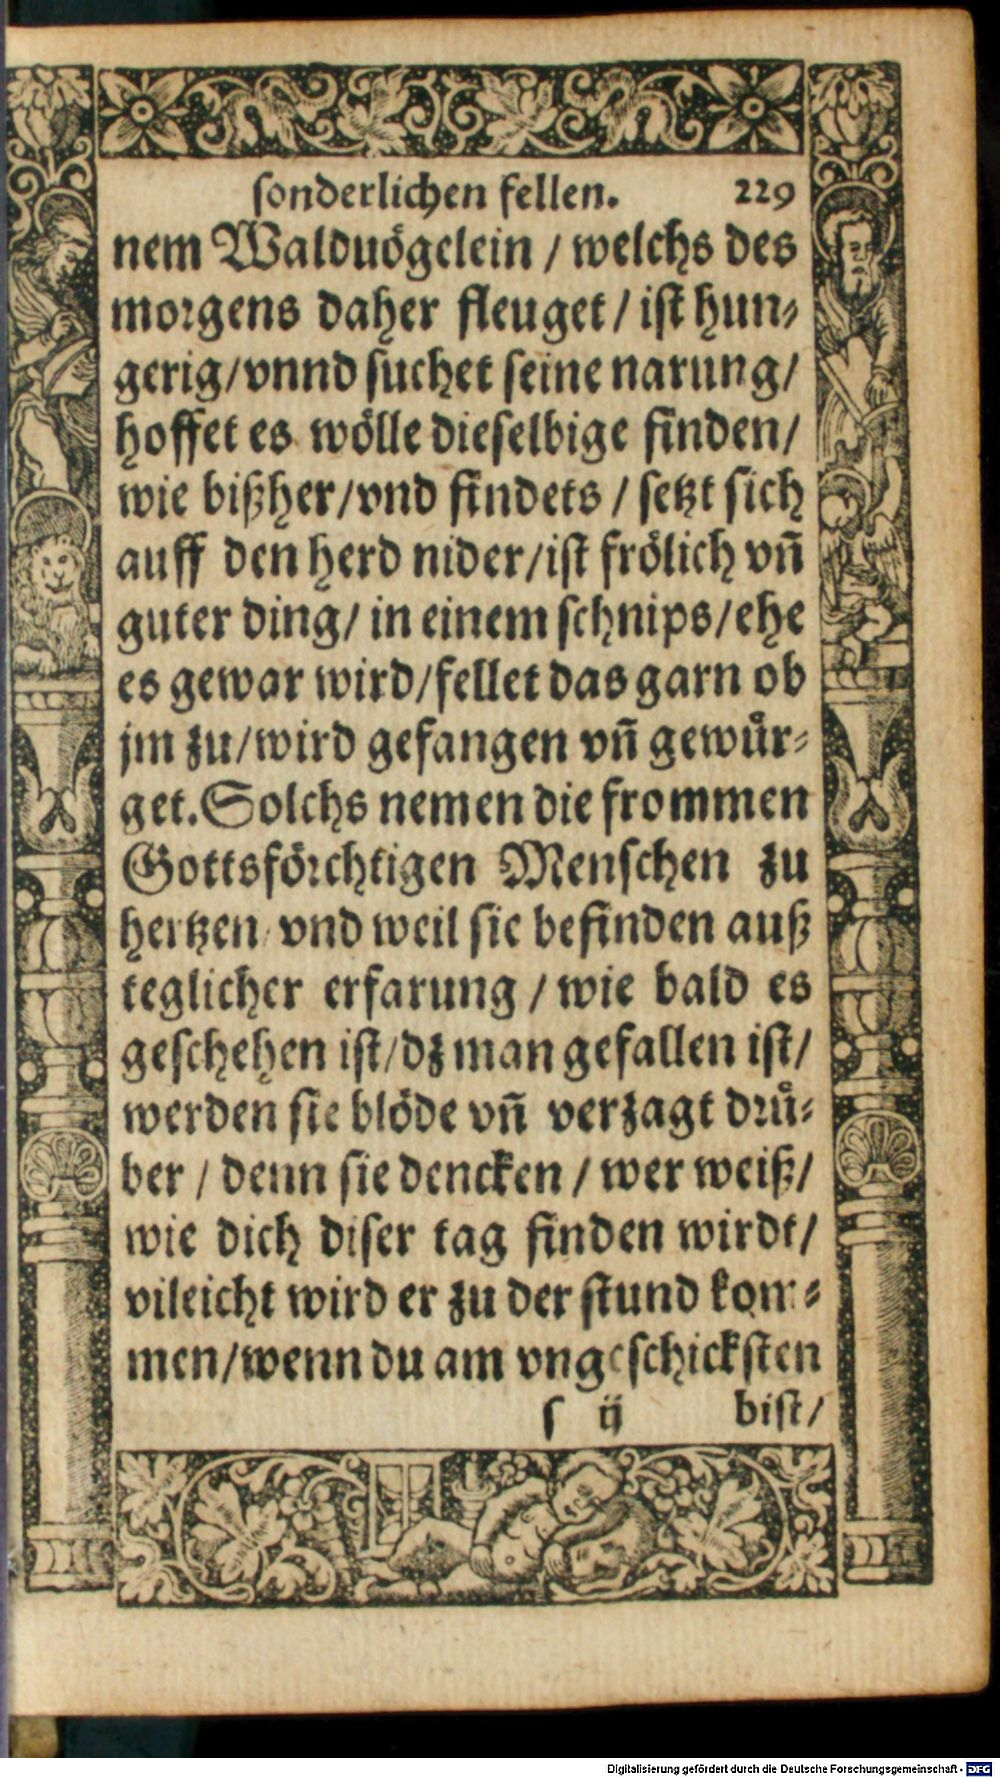 sonderlichen fellen. 229
nem Walduögelein / welchs des
morgens daher fleuget / ist hun⸗
gerig / vnnd suchet seine narung /
hoffet es wölle dieselbige finden /
wie bißher / vnd findets / setzt sich
auff den herd nider / ist frölich vñ
guter ding / in einem schnips / ehe
es gewar wird / fellet das garn ob
jm zu / wird gefangen vñ gewuͤr⸗
get. Solchs nemen die frommen
Gottsförchtigen Menschen zu
hertzen / vnd weil sie befinden auß
teglicher erfarung / wie bald es
geschehen ist / dz man gefallen ist /
werden sie blöde vñ verzagt druͤ⸗
ber / denn sie dencken / wer weiß /
wie dich diser tag finden wirdt /
vileicht wird er zu der stund kom⸗
men / wenn du am vngeschicksten
s ij bist /
Digitalisierung gefördert durch die Deutsche Forschungsgemeinschaft - DFG